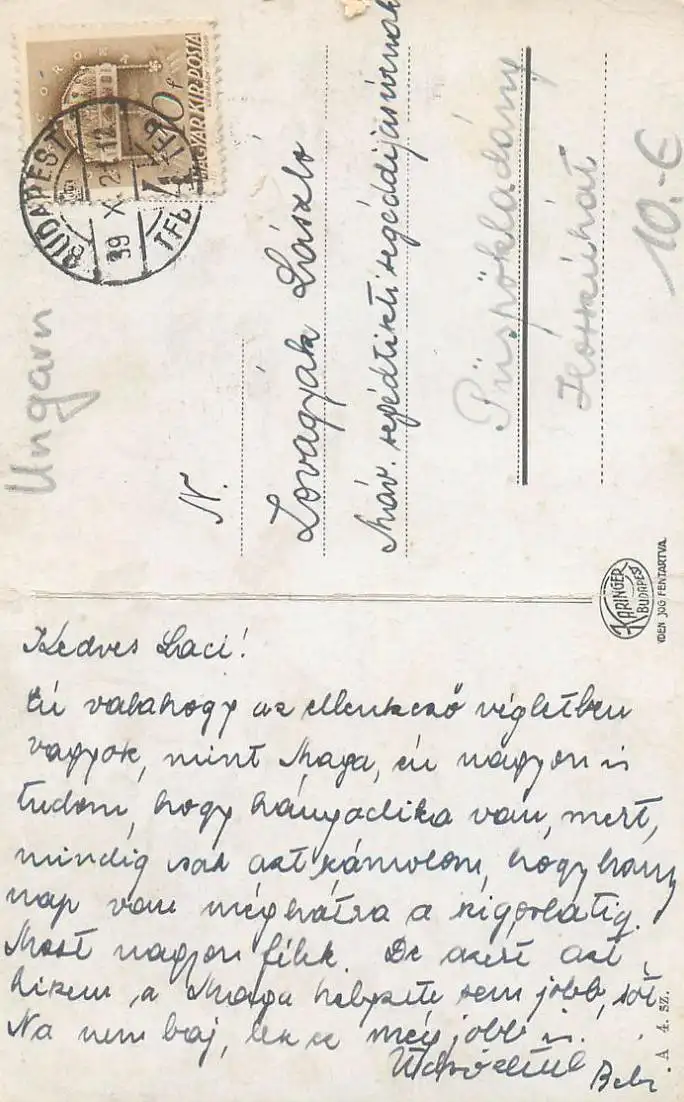 KORONA
10f
MAGYAR KIR. POSTA
BUDAPEST
39 X 2 12
Ungarn
N.
Lovagyák László
Máv. segédtiszti segéddíjas úrnak
Püspökladány
10.-€
KARINGER
BUDAPEST
JOG FENTARTVA.
Kedves Laci!
Én valahogy az ellenkező végletben
vagyok, mint Maga, én nagyon is
tudom, hogy hányadika van, mert,
mindig csak azt számolom, hogy hány
nap van még hátra a szigorlatig.
Most nagyon félek. De azért azt
hiszem, a Maga helyzete sem jobb, sőt
Na nem baj, lesz ez még jobb is.
Üdvözlettel
Bebi
A 4. SZ.